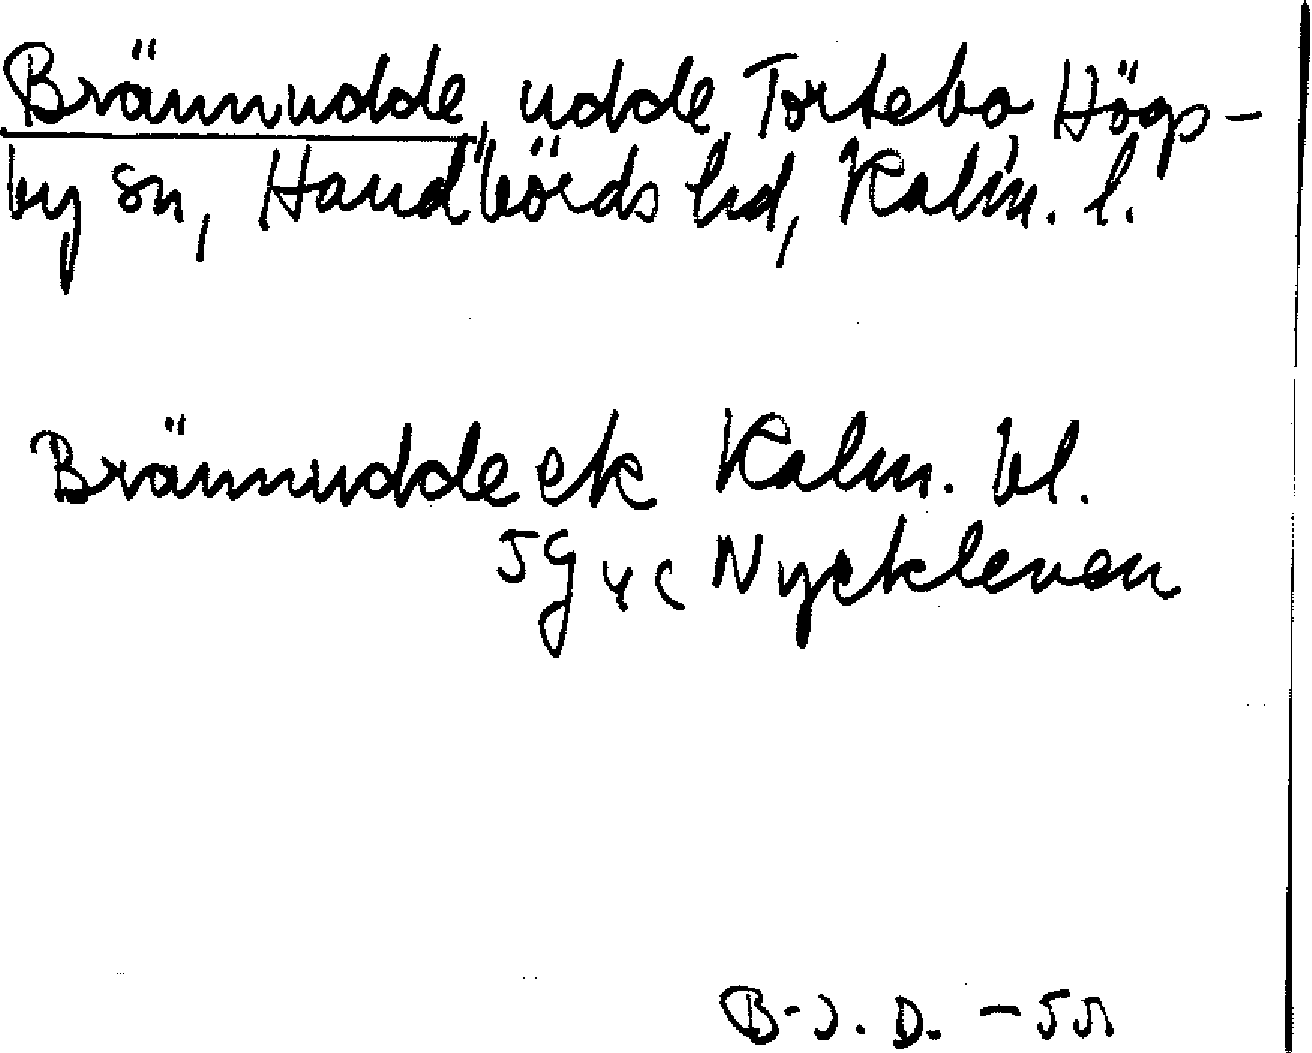 Brännudde, udde, Tortebo, Högs-
by sn, Handbörds hd, Kalm. l.
Brännudde ek Kalm. bl.
5g 4c Nyckleven
B-J. D. -55